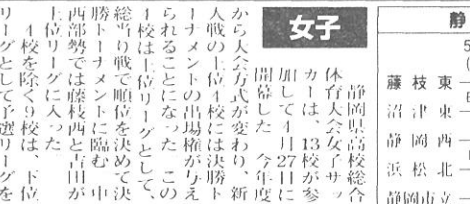 女子
静岡県高校総合
体育大会女子サッ
カーは、13校が参
加して4月27日に
開幕した 今年度
から大会方式が変わり、新
人戦の上位4校には決勝ト
ーナメントの出場権が与え
られることになった この
4校は上位リーグとして、
総当り戦で順位を決めて決
勝トーナメントに臨む 中
西部勢では藤枝西と吉田が
上位リーグに入った
4校を除く9校は、下位
リーグとして予選リーグを
静
藤枝東
沼津東
静岡西
浜松北
静岡市立